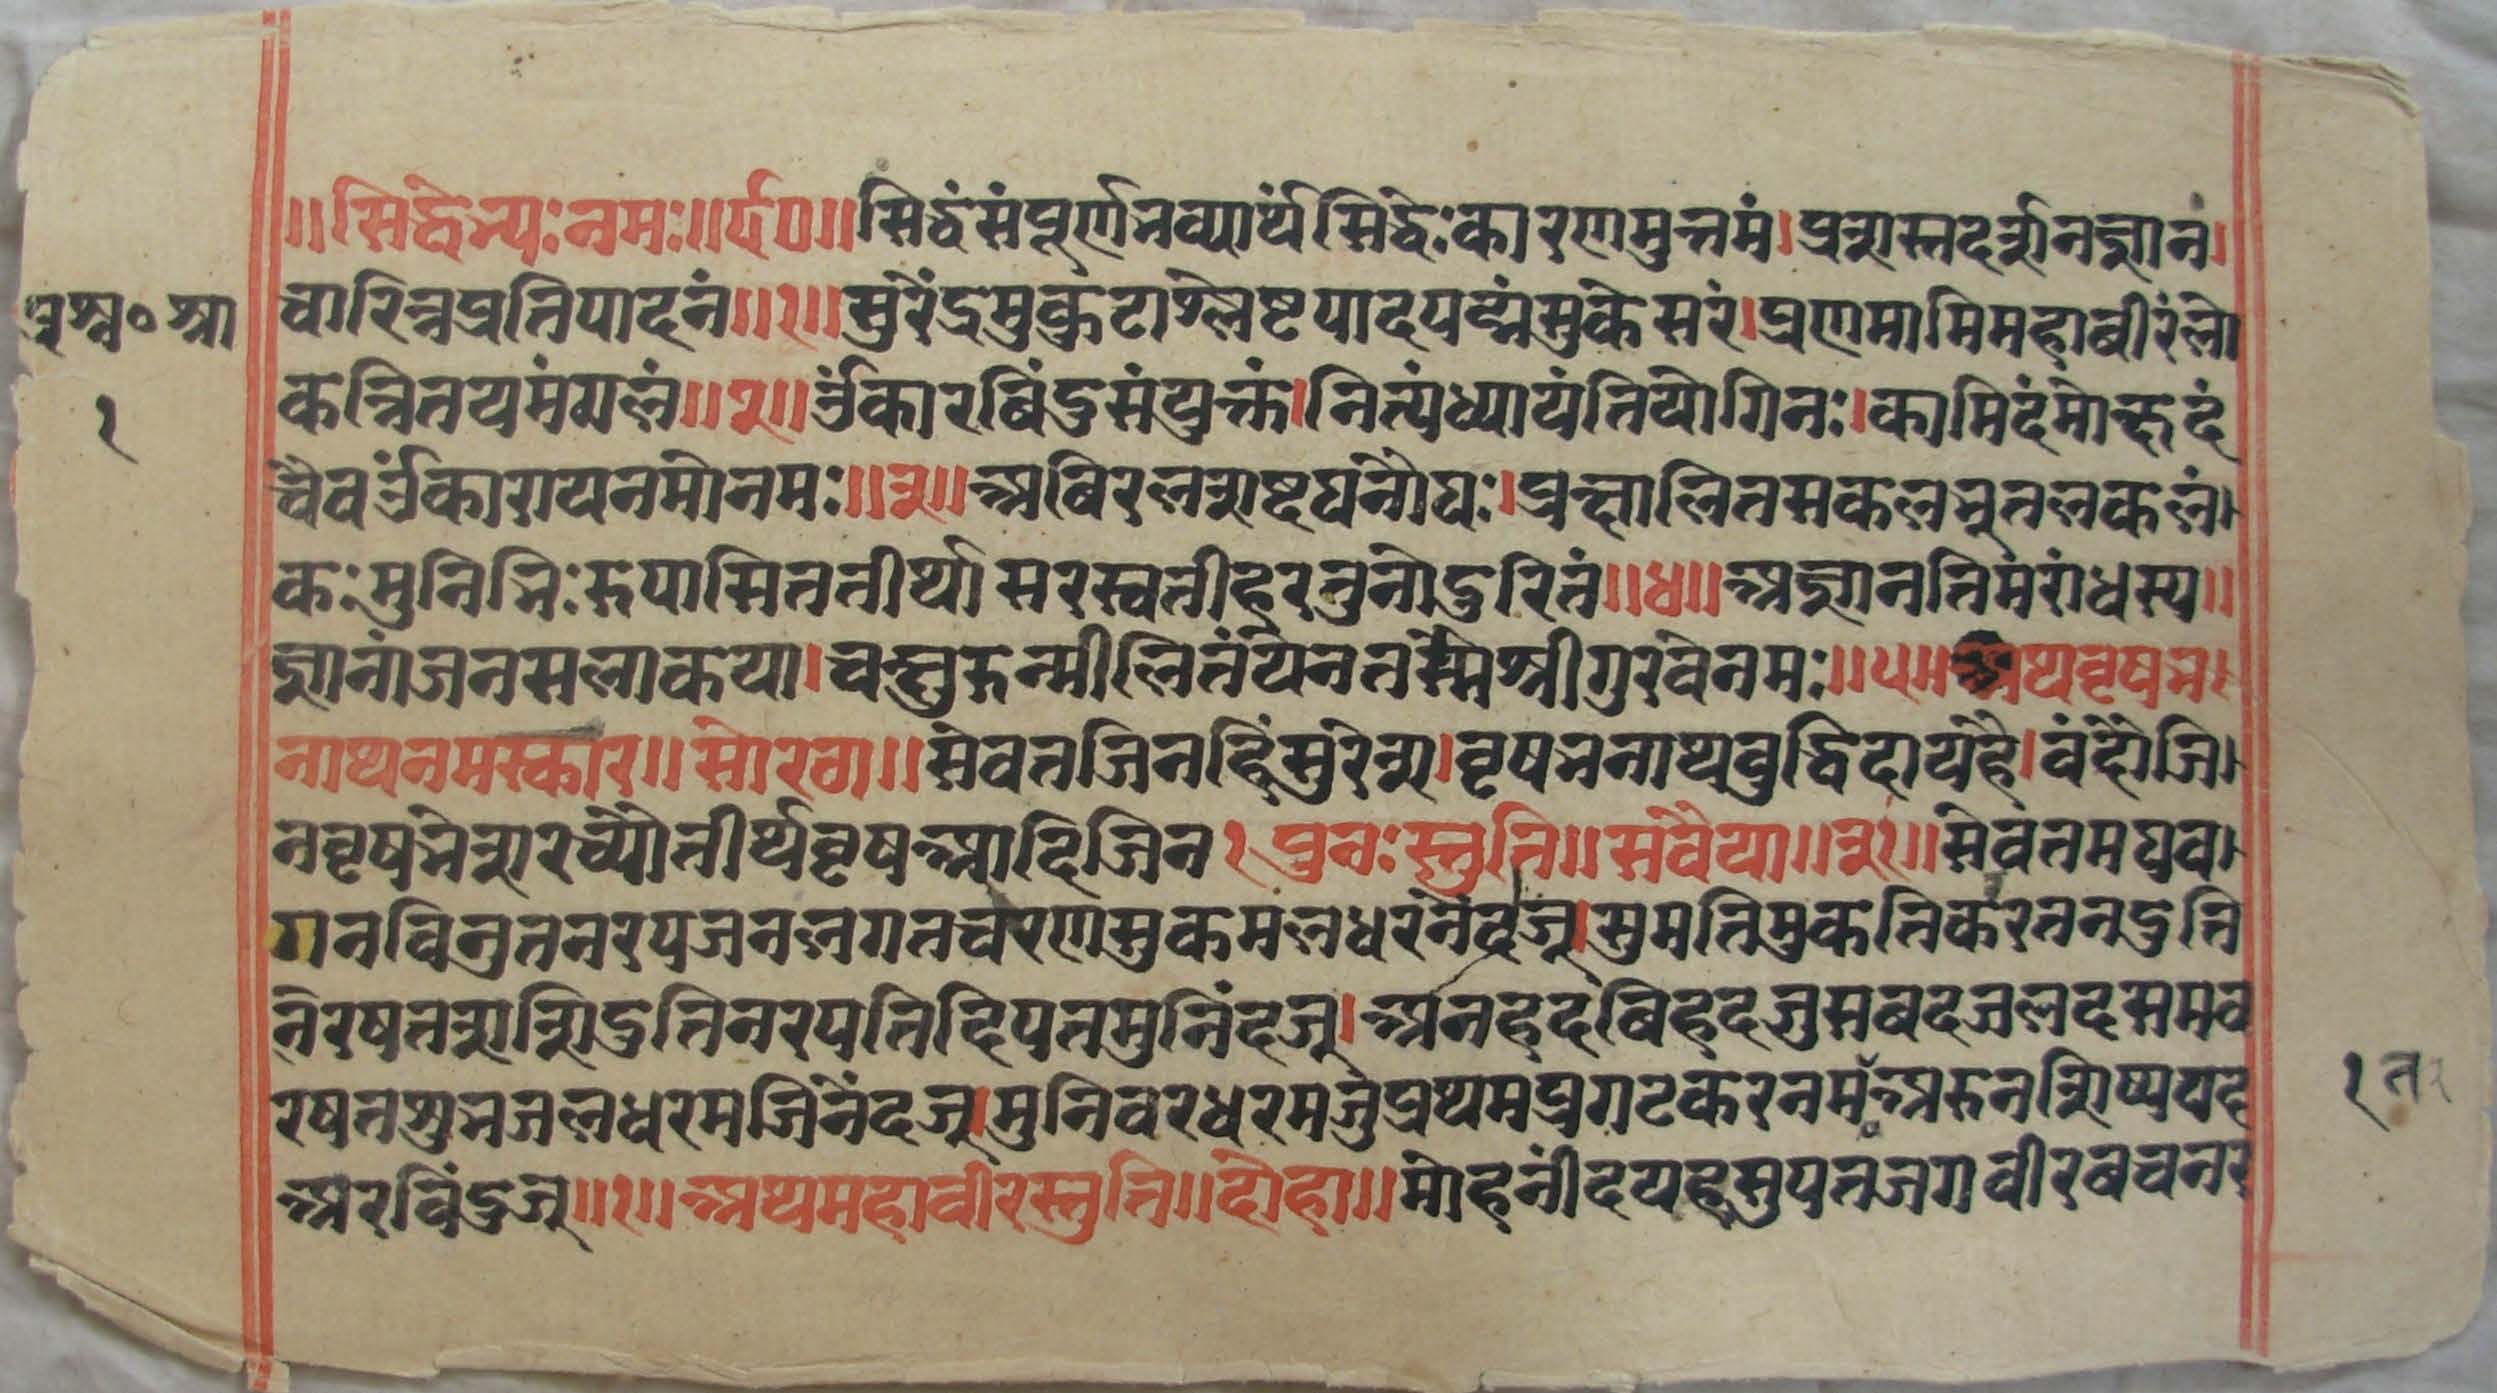 ॥सिद्धेभ्यः नमः॥र्द०॥सिद्धं संपूर्णभव्यार्थं सिद्धेः कारणमुत्तमं। प्रशस्तदर्शनज्ञानं।
प्रश्न० श्रा
चारित्रप्रतिपादनं॥१॥सुरेंद्रमुकुटाश्लेष्टपादपद्मंसुकेसरं।प्रणमामिमहाबीरंलो
१
कत्रितयमंगलं॥२॥ॐकारबिंदुसंयुक्तं।नित्यंध्यायंतियोगिनः।कामिदंमोक्षदं
चैवॐकारायनमोनमः॥३॥अबिरलशष्टघनौघः।प्रक्षालितसकलभूतलकलं।
कः मुनिभिःरुपासिततीर्था सरस्वतीहरतुनोदुरितं॥४॥अज्ञानतिमरांधस्य॥
ज्ञानांजनसलाकया।चक्षुरुन्मीलितंयेनतस्मैश्रीगुरवेनमः॥५॥अथवृषभ।
नाथनमस्कार॥सोरठा॥सेवतजिनहिंसुरेश।वृषभनाथबुद्धिदायहै।वंदौंजि।
नवृषभेशरच्यौतीर्थवृषआदिजिन१पुनःस्तुति॥सवैया॥३१॥सेवतमघव।
गनविनुतनरपजनलगतचरणसुकमलधरनंदजू।सुमतिमुकतिकरतनदुति
नेरषतशशिदुतिनरपतिदिपतमुनिंदजू।अनहदबिहदजुसबदजलदसमव
रषतशुभजलधरमजिनेंदजू।मुनिवरधरमजुप्रथमप्रगटकरनमैंअरुनशिष्यपद
अरविंदुजू॥१॥अथमहावीरस्तुति॥दोहा॥मोहनींदयहसुपतजगवीरबचनर
१